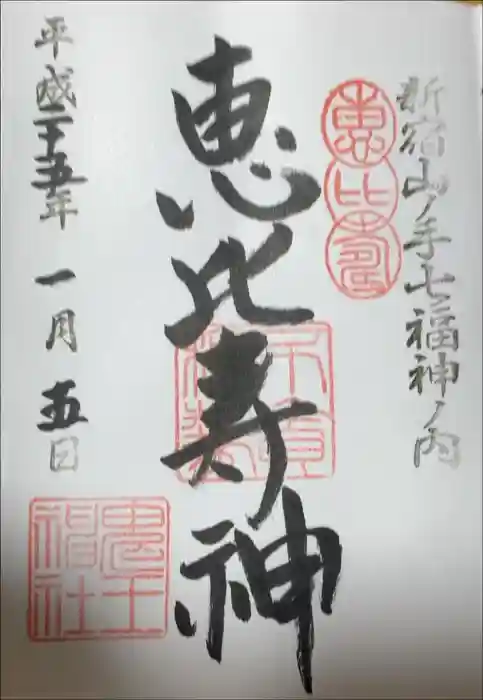 新宿山ノ手七福神ノ内
恵比寿
恵比寿神
平成二十五年 一月 五日
鬼王
神社